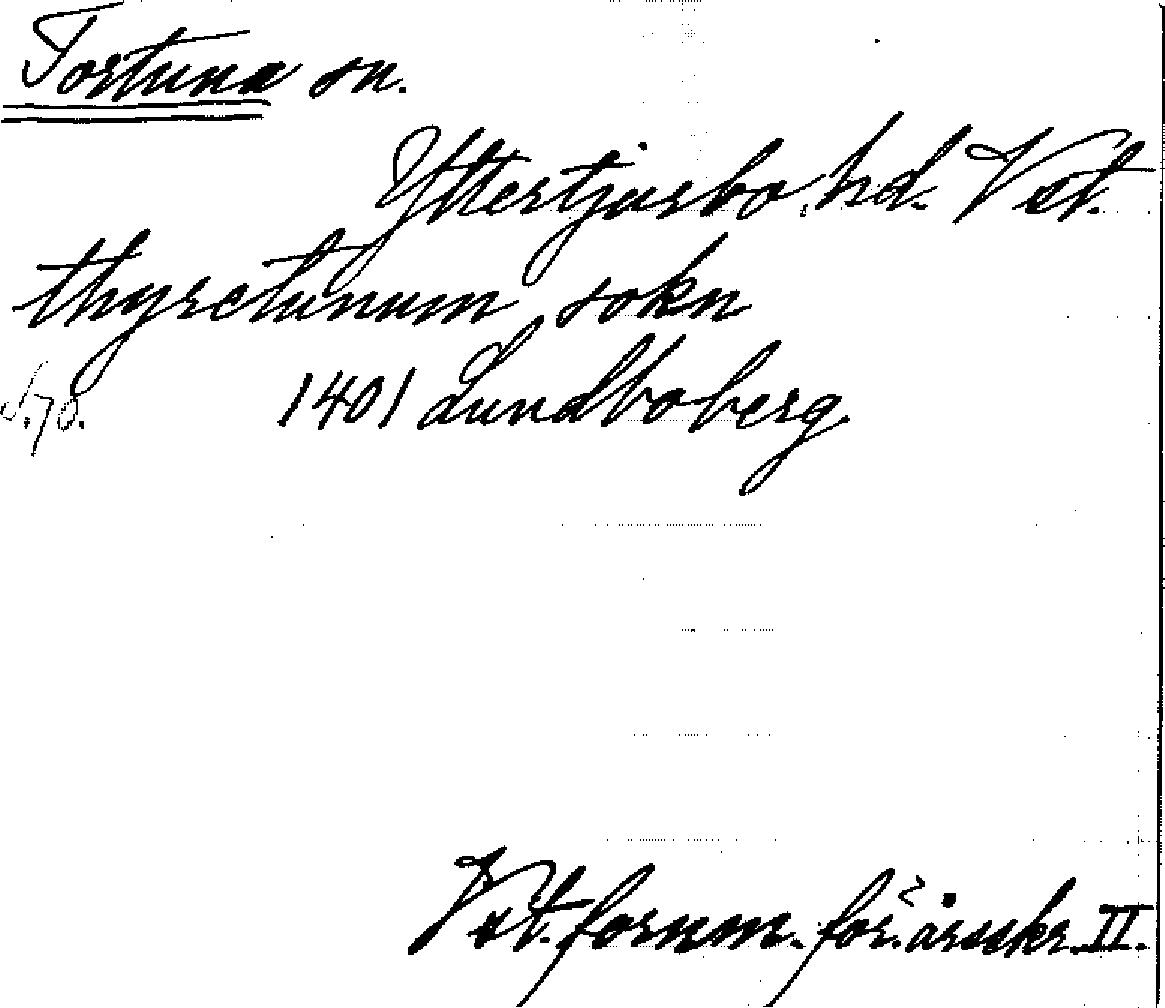 Tortuna sn.
Yttertjurbo hd. Vstl.
thyrctunum sokn
s. 70. 1401 Lundboberg
Vstl. fornm. för:s årsskr. II.